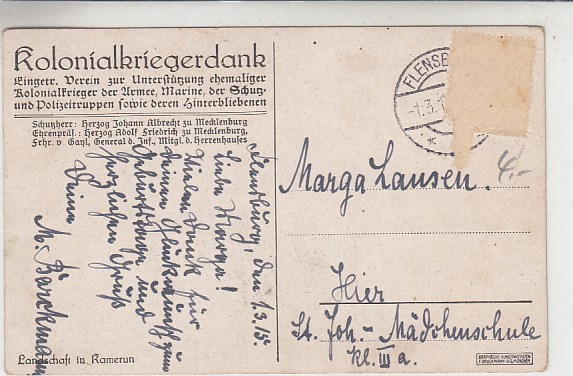 Kolonialkriegerdank
Eingetr. Verein zur Unterstützung ehemaliger
Kolonialkrieger der Armee, Marine, der Schutz-
und Polizeitruppen sowie deren Hinterbliebenen
Schutzherr: Herzog Johann Albrecht zu Mecklenburg
Ehrenpräs.: Herzog Adolf Friedrich zu Mecklenburg,
Frhr. v. Gayl, General d. Inf., Mitgl. d. Herrenhauses
Flensburg, den 1.3.15
Liebe Marga!
Vielen Dank für
Deinen Glückwunsch zum
Geburtstage und
herzlichen Gruß
Deine
M. Barckmann
Landschaft in Kamerun
FLENSB
-1.3.1
4.-
Marga Lausen.
Hier
St. Joh.- Mädchenschule
kl. III a.
GRAPHISCHE KUNSTANSTALTEN
F. BRUCKMANN A.G. MÜNCHEN